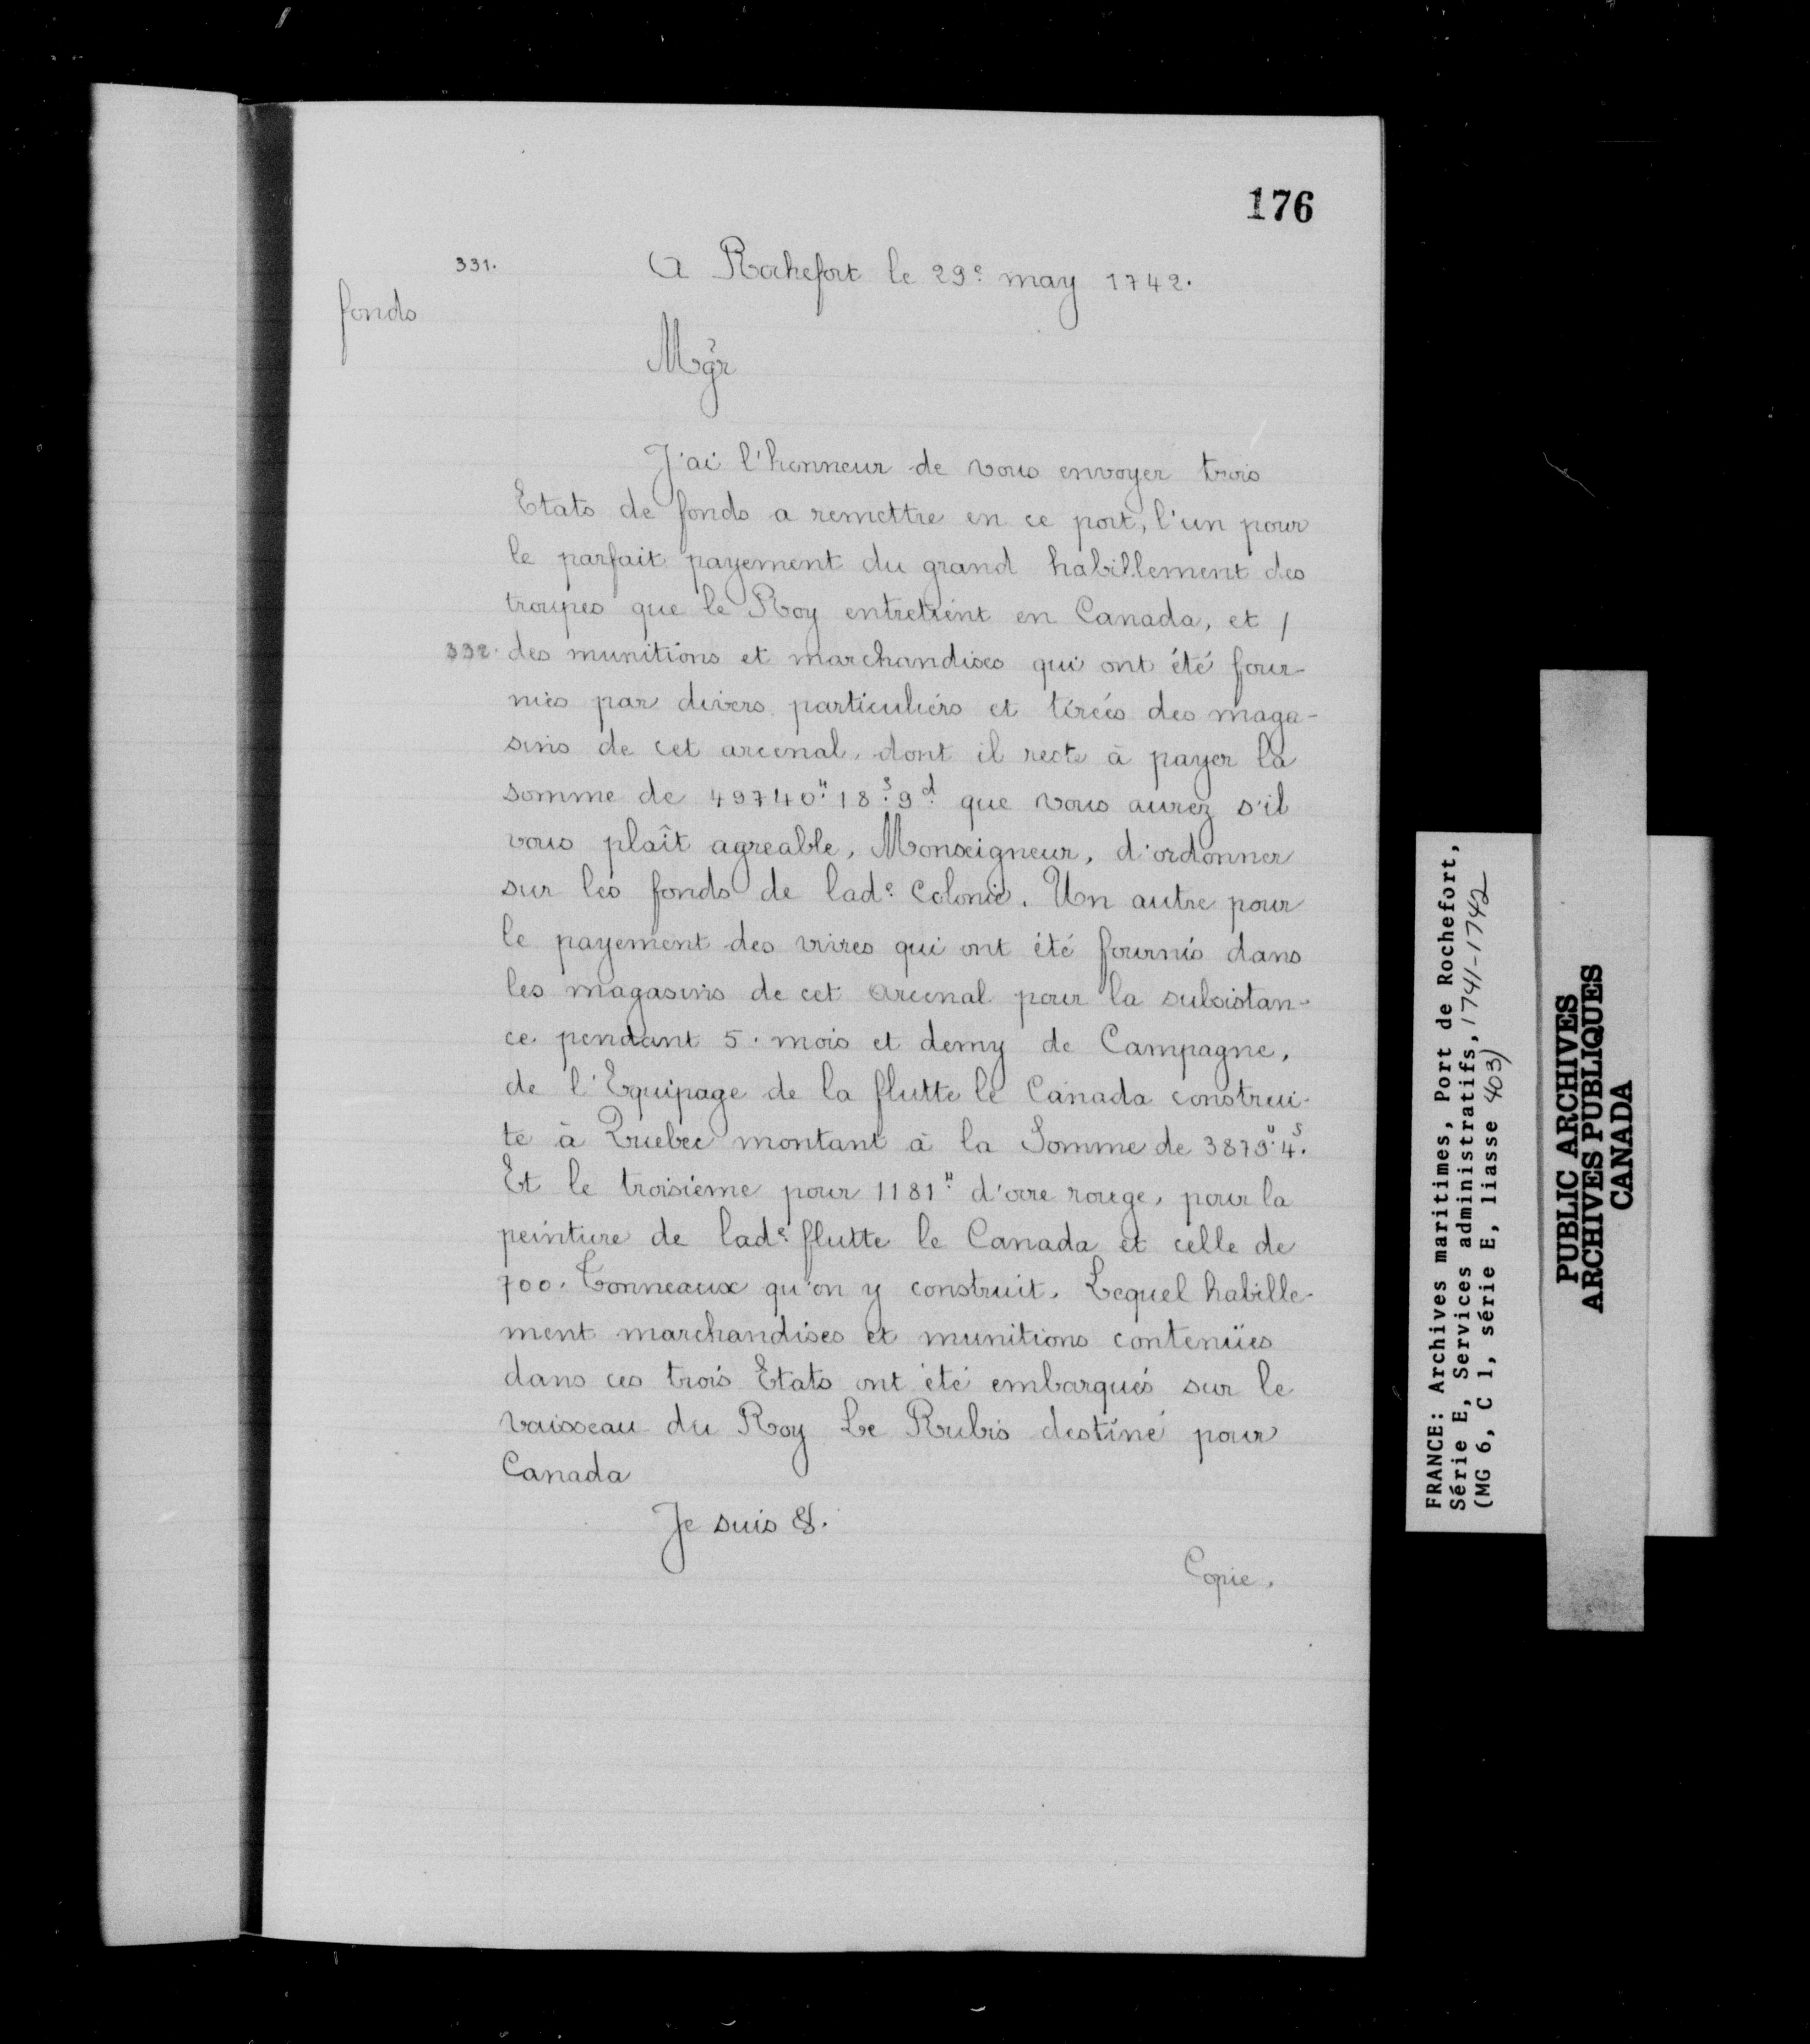 176
331.
A Rochefort le 29e may 1742.
fonds
Mgr
J'ai l'honneur de vous envoyer trois
Etats de fonds a remettre en ce port, l'un pour
le parfait payement du grand habillement des
troupes que le Roy entretient en Canada, et /
332. des munitions et marchandises qui ont été four-
nies par divers particuliers et tirées des maga-
sins de cet arcenal, dont il reste à payer la
somme de 49740" 18s 9d que vous aurez s'il
vous plaît agreable, Monseigneur, d'ordonner
sur les fonds de lade Colonie. Un autre pour
le payement des vivres qui ont été fournis dans
les magasins de cet Arcenal pour la subsistan-
ce pendant 5. mois et demy de Campagne,
de l'Equipage de la flutte le Canada construi-
te à Quebec montant à la Somme de 3879" 4s.
Et le troisième pour 1181" d'ocre rouge, pour la
peinture de lade flutte le Canada et celle de
700. Tonneaux qu'on y construit. Lequel habille-
ment marchandises et munitions contenües
dans ces trois Etats ont été embarqués sur le
Vaisseau du Roy Le Rubis destiné pour
Canada
Je suis &.
Copie.
FRANCE: Archives maritimes, Port de Rochefort,
Série E, Services administratifs, 1741-1742
(MG 6, C 1, série E, liasse 403)
PUBLIC ARCHIVES
ARCHIVES PUBLIQUES
CANADA